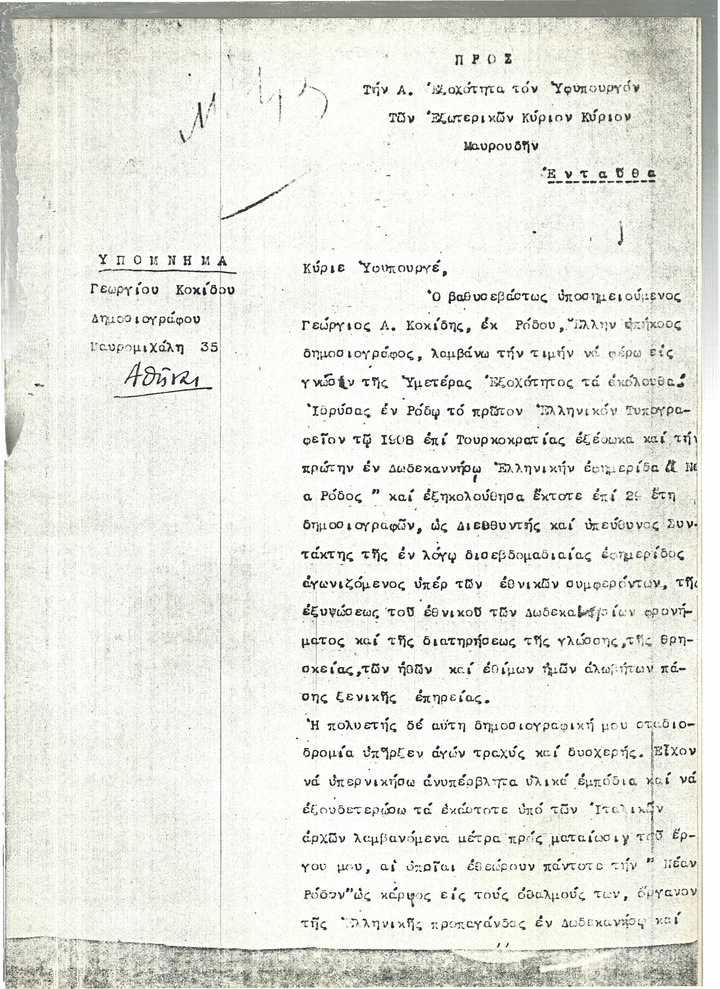 Π Ρ Ο Σ
Τήν Α. Ἐξοχότητα τόν Ὑφυπουργόν
Τῶν Ἐξωτερικῶν Κύριον Κύριον
Μαυρουδῆν
Ἐ ν τ α ῦ θ α
Υ Π Ο Μ Ν Η Μ Α
Γεωργίου Κοκίδου
Δημοσιογράφου
Μαυρομιχάλη 35
Ἀθῆναι
Κύριε Ὑφυπουργέ,
Ὁ βαθυσεβάστως ὑποσημειούμενος
Γεώργιος Α. Κοκίδης, ἐκ Ρόδου, Ἕλλην ὑπήκοος
δημοσιογράφος, λαμβάνω τήν τιμήν νά φέρω εἰς
γνῶσιν τῆς Ὑμετέρας Ἐξοχότητος τά ἀκόλουθα:
Ἱδρύσας ἐν Ρόδῳ τό πρῶτον Ἑλληνικόν Τυπογρα-
φεῖον τῷ 1908 ἐπί Τουρκοκρατίας ἐξέδωκα καί τήν
πρώτην ἐν Δωδεκαννήσῳ Ἑλληνικήν ἐφημερίδα " Νέ
α Ρόδος " καί ἐξηκολούθησα ἔκτοτε ἐπί 29 ἔτη
δημοσιογραφῶν, ὡς Διευθυντής καί ὑπεύθυνος Συν-
τάκτης τῆς ἐν λόγῳ δισεβδομαδιαίας ἐφημερίδος
ἀγωνιζόμενος ὑπέρ τῶν ἐθνικῶν συμφερόντων, τῆς
ἐξυψώσεως τοῦ ἐθνικοῦ τῶν Δωδεκανησίων φρονή-
ματος καί τῆς διατηρήσεως τῆς γλώσσης, τῆς θρη-
σκείας, τῶν ἠθῶν καί ἐθίμων ἡμῶν ἀλωβήτων πά-
σης ξενικῆς ἐπηρείας.
Ἡ πολυετής δέ αὕτη δημοσιογραφική μου σταδιο-
δρομία ὑπῆρξεν ἀγών τραχύς καί δυσχερής. Εἶχον
νά ὑπερνικήσω ἀνυπέρβλητα ὑλικά ἐμπόδια καί νά
ἐξουδετερώσω τά ἑκάστοτε ὑπό τῶν Ἰταλικῶν
ἀρχῶν λαμβανόμενα μέτρα πρός ματαίωσιν τοῦ ἔρ-
γου μου, αἱ ὁποῖαι ἐθεώρουν πάντοτε τήν " Νέαν
Ρόδον" ὡς κάρφος εἰς τούς ὀθαλμούς των, ὄργανον
τῆς Ἑλληνικῆς προπαγάνδας ἐν Δωδεκανήσῳ καί